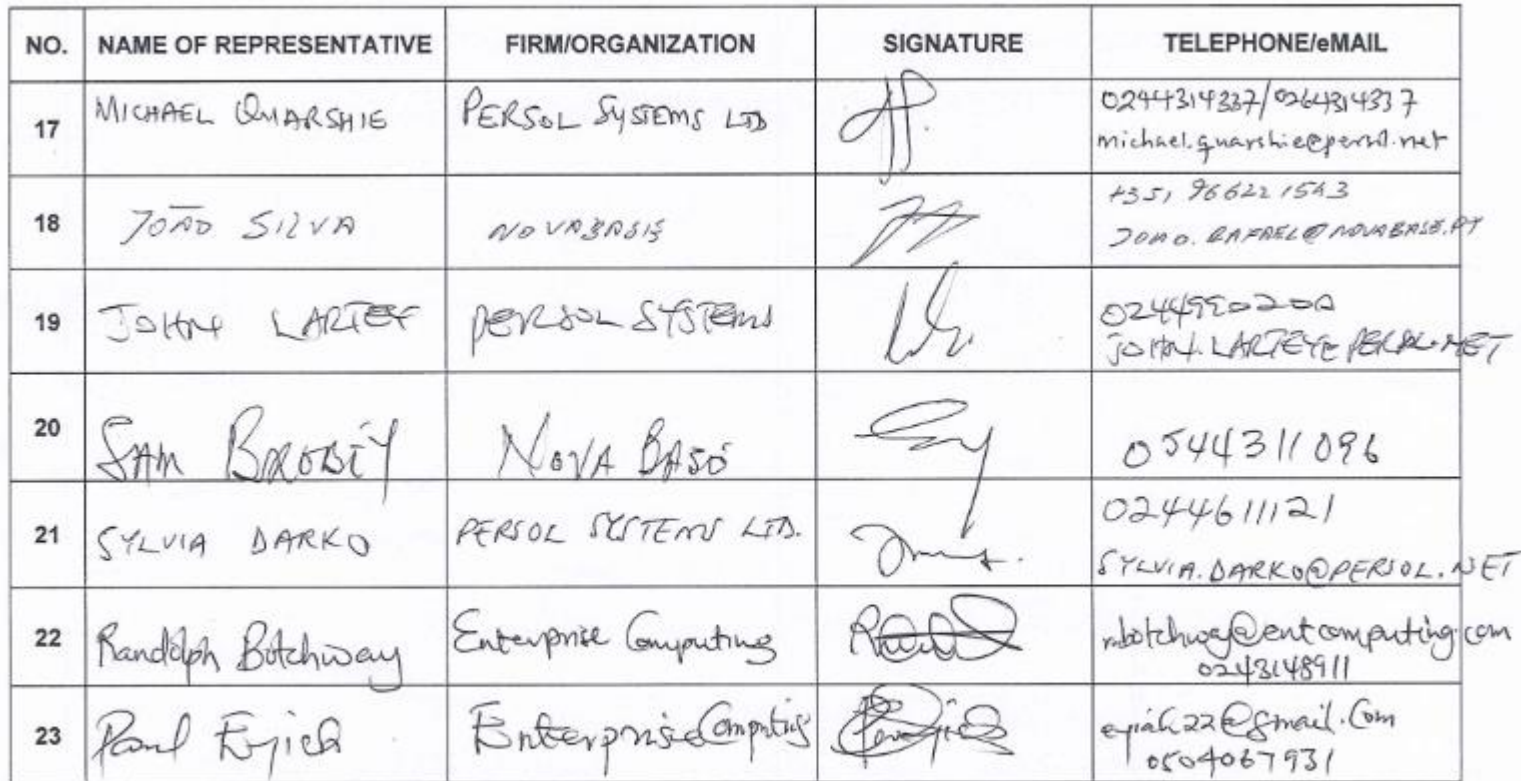 NO. NAME OF REPRESENTATIVE FIRM/ORGANIZATION SIGNATURE TELEPHONE/eMAIL
17 MICHAEL QUARSHIE PERSOL SYSTEMS LTD 0244314337/0264314337
michael.quarshie@persol.net
18 JOÃO SILVA NOVABASE +351 966221563
JOAO.RAFAEL@NOVABASE.PT
19 JOHN LARTEY PERSOL SYSTEMS
JOHN.LARTEY@PERSOL.NET
20 SAM BROBEY NOVA BASE 0544311096
21 SYLVIA DARKO PERSOL SYSTEMS LTD. 0244611121
SYLVIA.DARKO@PERSOL.NET
22 Randolph Botchway Enterprise Computing rbotchway@entcomputing.com
0243148911
23 Paul Enterprise Computing
0504067931